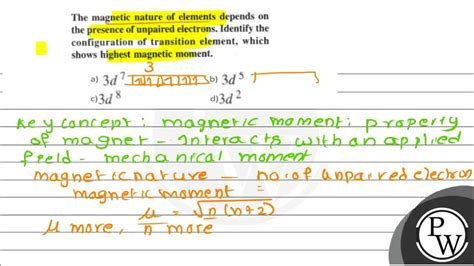 The magnetic nature of elements depends on
the presence of unpaired electrons. Identify the
configuration of transition element, which
shows highest magnetic moment.
3
a) 3d⁷ b) 3d⁵
c) 3d⁸ d) 3d²
Key concept : magnetic moment : property
of magnet - Interacts with an applied
field - mechanical moment
magnetic nature - no. of unpaired electron
magnetic moment =
μ = √n(n+2)
μ more, n more
PW